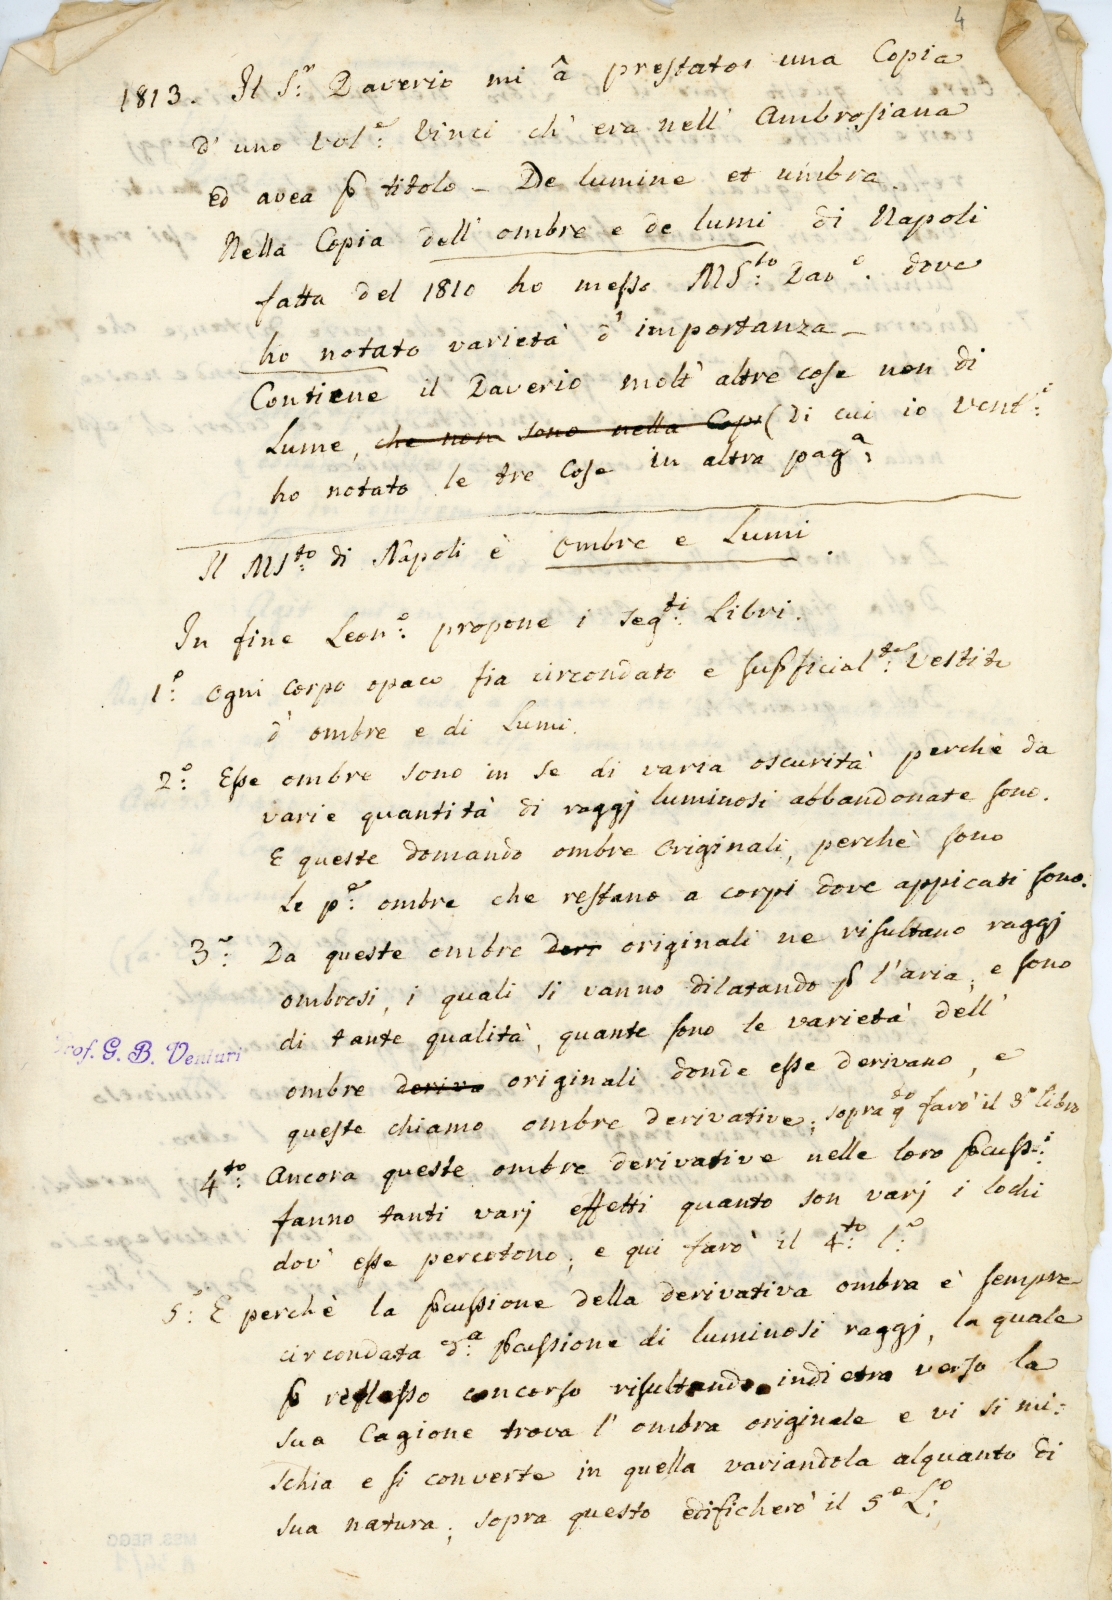 4
1813. Il S.r Daverio mi â prestato una Copia
d' uno vol.e Vinci ch' era nell' Ambrosiana
ed avea p titolo - De lumine et umbra.
Nella Copia dell' ombre e de lumi di Napoli
fatta del 1810 ho messo MS.to Dav.o dove
ho notato varietà d' importanza -
Contiene il Daverio molt' altre cose non di
Lume, che non sono nella Cop (di cui io Vent.i
ho notato le tre Cose in altra pag.a
Il MS.to di Napoli è Ombre e Lumi.
In fine Leon.o propone i seg.ti Libri.
1.o Ogni corpo opaco sia circondato e supficial.te vestito
d' ombre e di Lumi.
2.o Esse ombre sono in se di varia oscurità perchè da
varie quantità di raggj luminosi abbandonate sono.
E queste domando ombre Originali, perchè sono
Le p.e ombre che restano a corpi dove appicati sono.
3.o Da queste ombre deri originali ne risultano raggj
ombrosi, i quali si vanno dilatando p l'aria, e sono
di tante qualità, quante sono le varietà dell'
ombre deriva originali donde esse derivano, e
queste chiamo ombre derivative; sopra q.do farò il 3.o libro
4.to Ancora queste ombre derivative nelle loro pcuss.i
fanno tanti varj effetti quanto son varj i lochi
dov' esse percotono; e qui farò il 4.to l.o
5.o E perchè la pcussione della derivativa ombra è sempre
circondata d.a pcussione di luminosi raggj, la quale
p reflesso concorso risultando indietro verso la
sua Cagione trova l' ombra originale e vi si mi:
schia e si converte in quella variandola alquanto di
sua natura; sopra questo edificherò il 5.o L.o
Prof. G. B. Venturi
MSS. REGG.